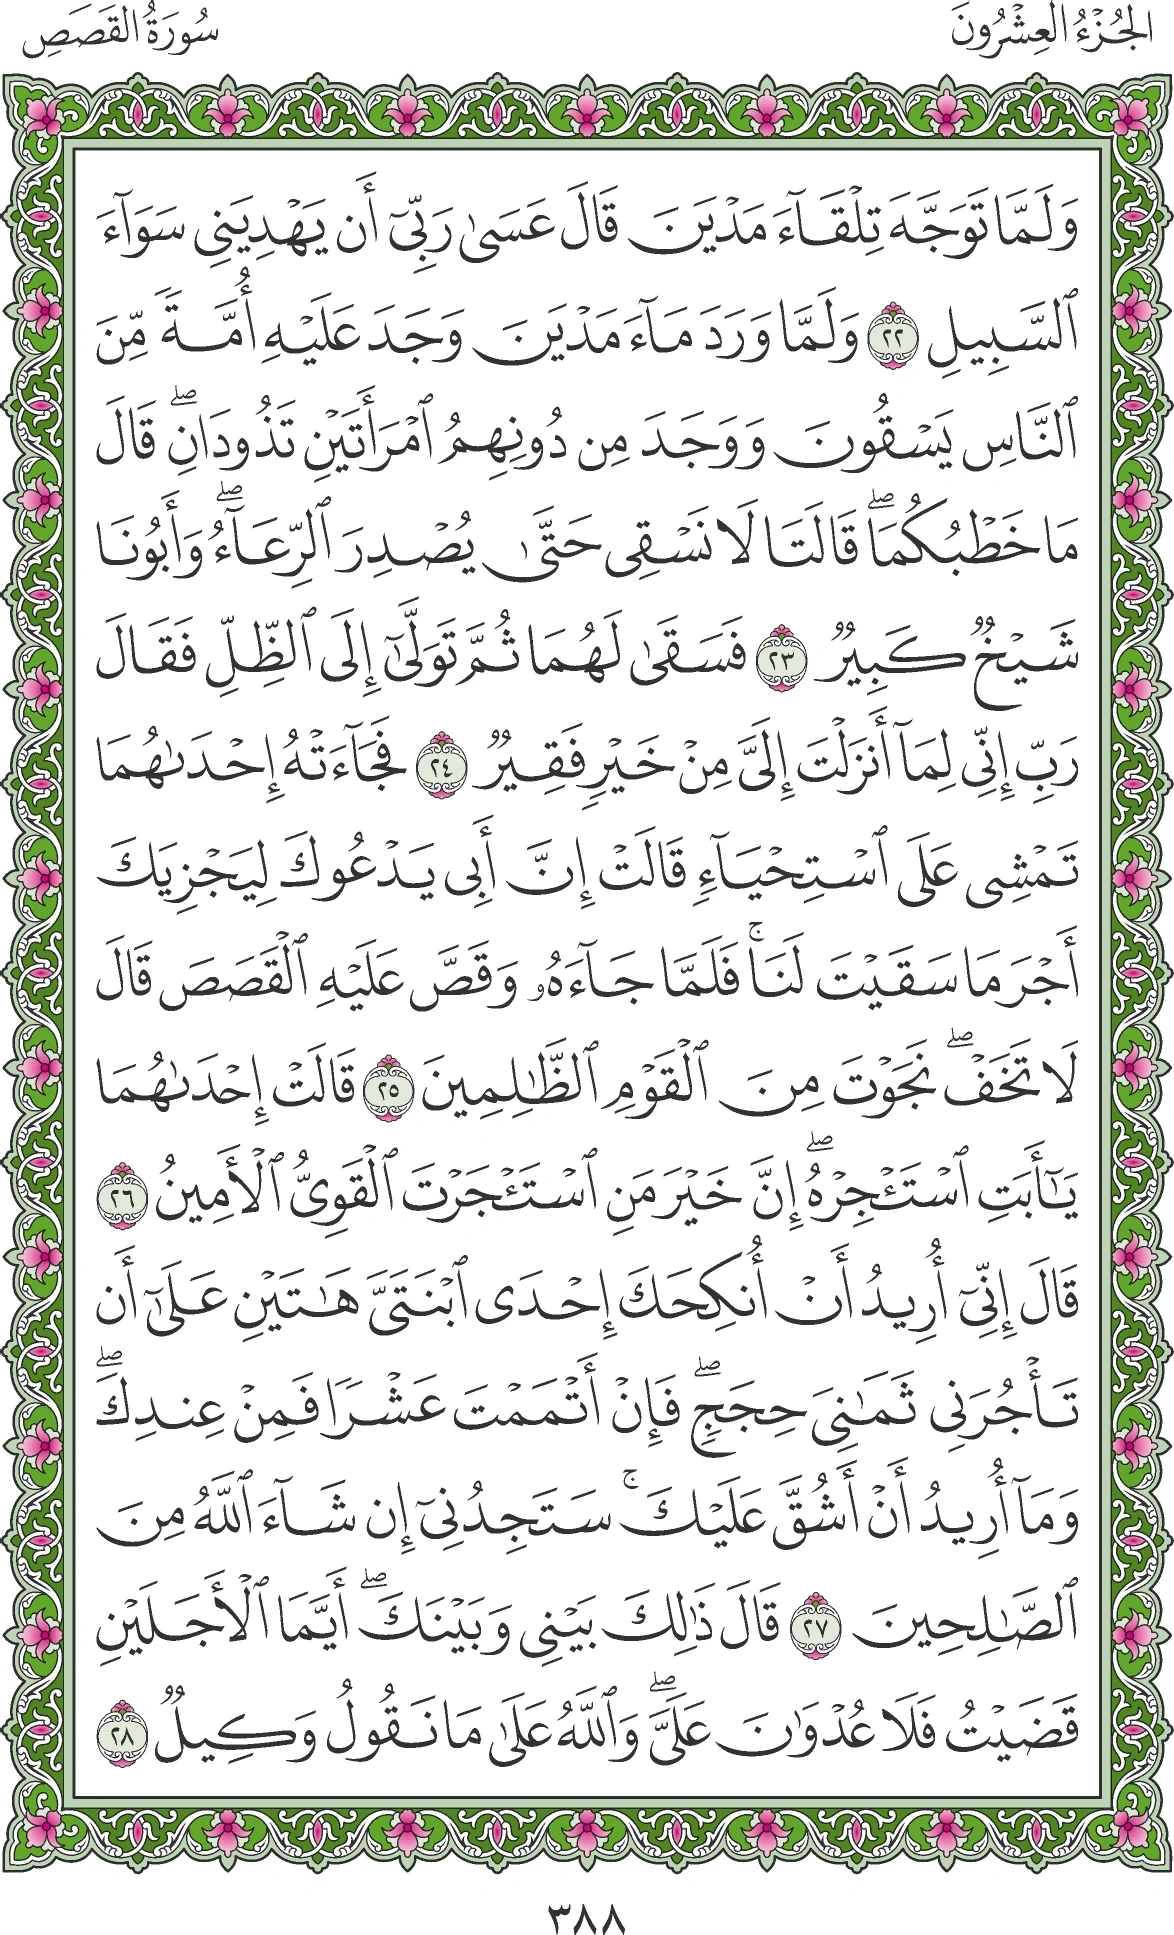 الجُزْءُ العِشْرُونَ
سُورَةُ القَصَصِ
وَلَمَّا تَوَجَّهَ تِلْقَآءَ مَدْيَنَ قَالَ عَسَىٰ رَبِّىٓ أَن يَهْدِيَنِى سَوَآءَ
ٱلسَّبِيلِ ٢٢ وَلَمَّا وَرَدَ مَآءَ مَدْيَنَ وَجَدَ عَلَيْهِ أُمَّةً مِّنَ
ٱلنَّاسِ يَسْقُونَ وَوَجَدَ مِن دُونِهِمُ ٱمْرَأَتَيْنِ تَذُودَانِۖ قَالَ
مَا خَطْبُكُمَاۖ قَالَتَا لَا نَسْقِى حَتَّىٰ يُصْدِرَ ٱلرِّعَآءُۖ وَأَبُونَا
شَيْخٌ كَبِيرٌ ٢٣ فَسَقَىٰ لَهُمَا ثُمَّ تَوَلَّىٰٓ إِلَى ٱلظِّلِّ فَقَالَ
رَبِّ إِنِّى لِمَآ أَنزَلْتَ إِلَىَّ مِنْ خَيْرٍ فَقِيرٌ ٢٤ فَجَآءَتْهُ إِحْدَىٰهُمَا
تَمْشِى عَلَى ٱسْتِحْيَآءٍ قَالَتْ إِنَّ أَبِى يَدْعُوكَ لِيَجْزِيَكَ
أَجْرَ مَا سَقَيْتَ لَنَاۚ فَلَمَّا جَآءَهُۥ وَقَصَّ عَلَيْهِ ٱلْقَصَصَ قَالَ
لَا تَخَفْۖ نَجَوْتَ مِنَ ٱلْقَوْمِ ٱلظَّٰلِمِينَ ٢٥ قَالَتْ إِحْدَىٰهُمَا
يَٰٓأَبَتِ ٱسْتَـْٔجِرْهُۖ إِنَّ خَيْرَ مَنِ ٱسْتَـْٔجَرْتَ ٱلْقَوِىُّ ٱلْأَمِينُ ٢٦
قَالَ إِنِّىٓ أُرِيدُ أَنْ أُنكِحَكَ إِحْدَى ٱبْنَتَىَّ هَٰتَيْنِ عَلَىٰٓ أَن
تَأْجُرَنِى ثَمَٰنِىَ حِجَجٍۖ فَإِنْ أَتْمَمْتَ عَشْرًا فَمِنْ عِندِكَۖ
وَمَآ أُرِيدُ أَنْ أَشُقَّ عَلَيْكَۚ سَتَجِدُنِىٓ إِن شَآءَ ٱللَّهُ مِنَ
ٱلصَّٰلِحِينَ ٢٧ قَالَ ذَٰلِكَ بَيْنِى وَبَيْنَكَۖ أَيَّمَا ٱلْأَجَلَيْنِ
قَضَيْتُ فَلَا عُدْوَٰنَ عَلَىَّۖ وَٱللَّهُ عَلَىٰ مَا نَقُولُ وَكِيلٌ ٢٨
٣٨٨